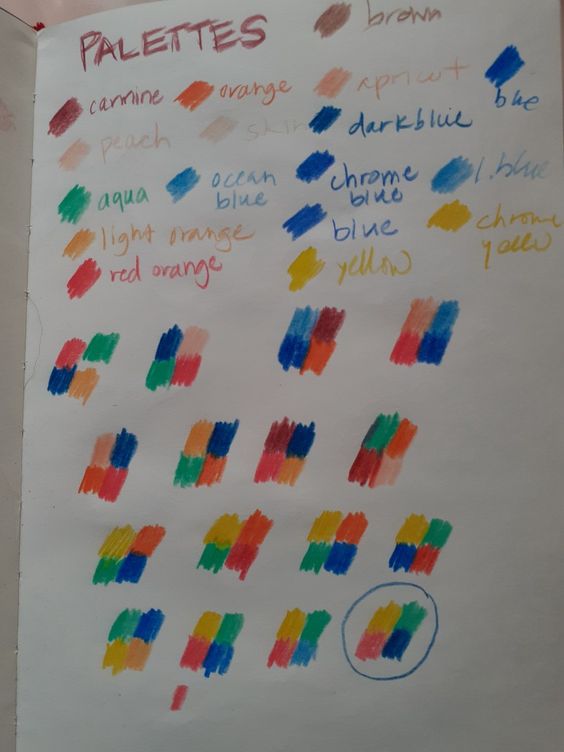 PALETTES
brown
carmine
orange
apricot
blue
peach
skin
dark blue
aqua
ocean
blue
chrome
blue
l. blue
light orange
blue
chrome
yellow
red orange
yellow